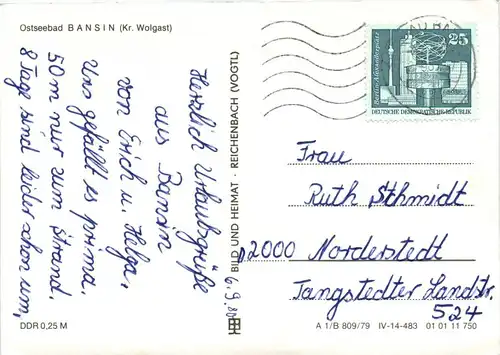 Ostseebad BANSIN (Kr. Wolgast)
Herzlich Urlaubsgrüße
aus Bansin
von Erich u. Helga,
Uns gefällt es prima.
50 m nur zum Strand.
8 Tage sind leider schon um,
6.9.80
DDR 0,25 M
BILD UND HEIMAT · REICHENBACH (VOGTL)
25
DEUTSCHE DEMOKRATISCHE REPUBLIK
Frau
Ruth Schmidt
D2000 Norderstedt
Tangstedter Landstr.
524
A 1/B 809/79 IV-14-483 01 01 11 750